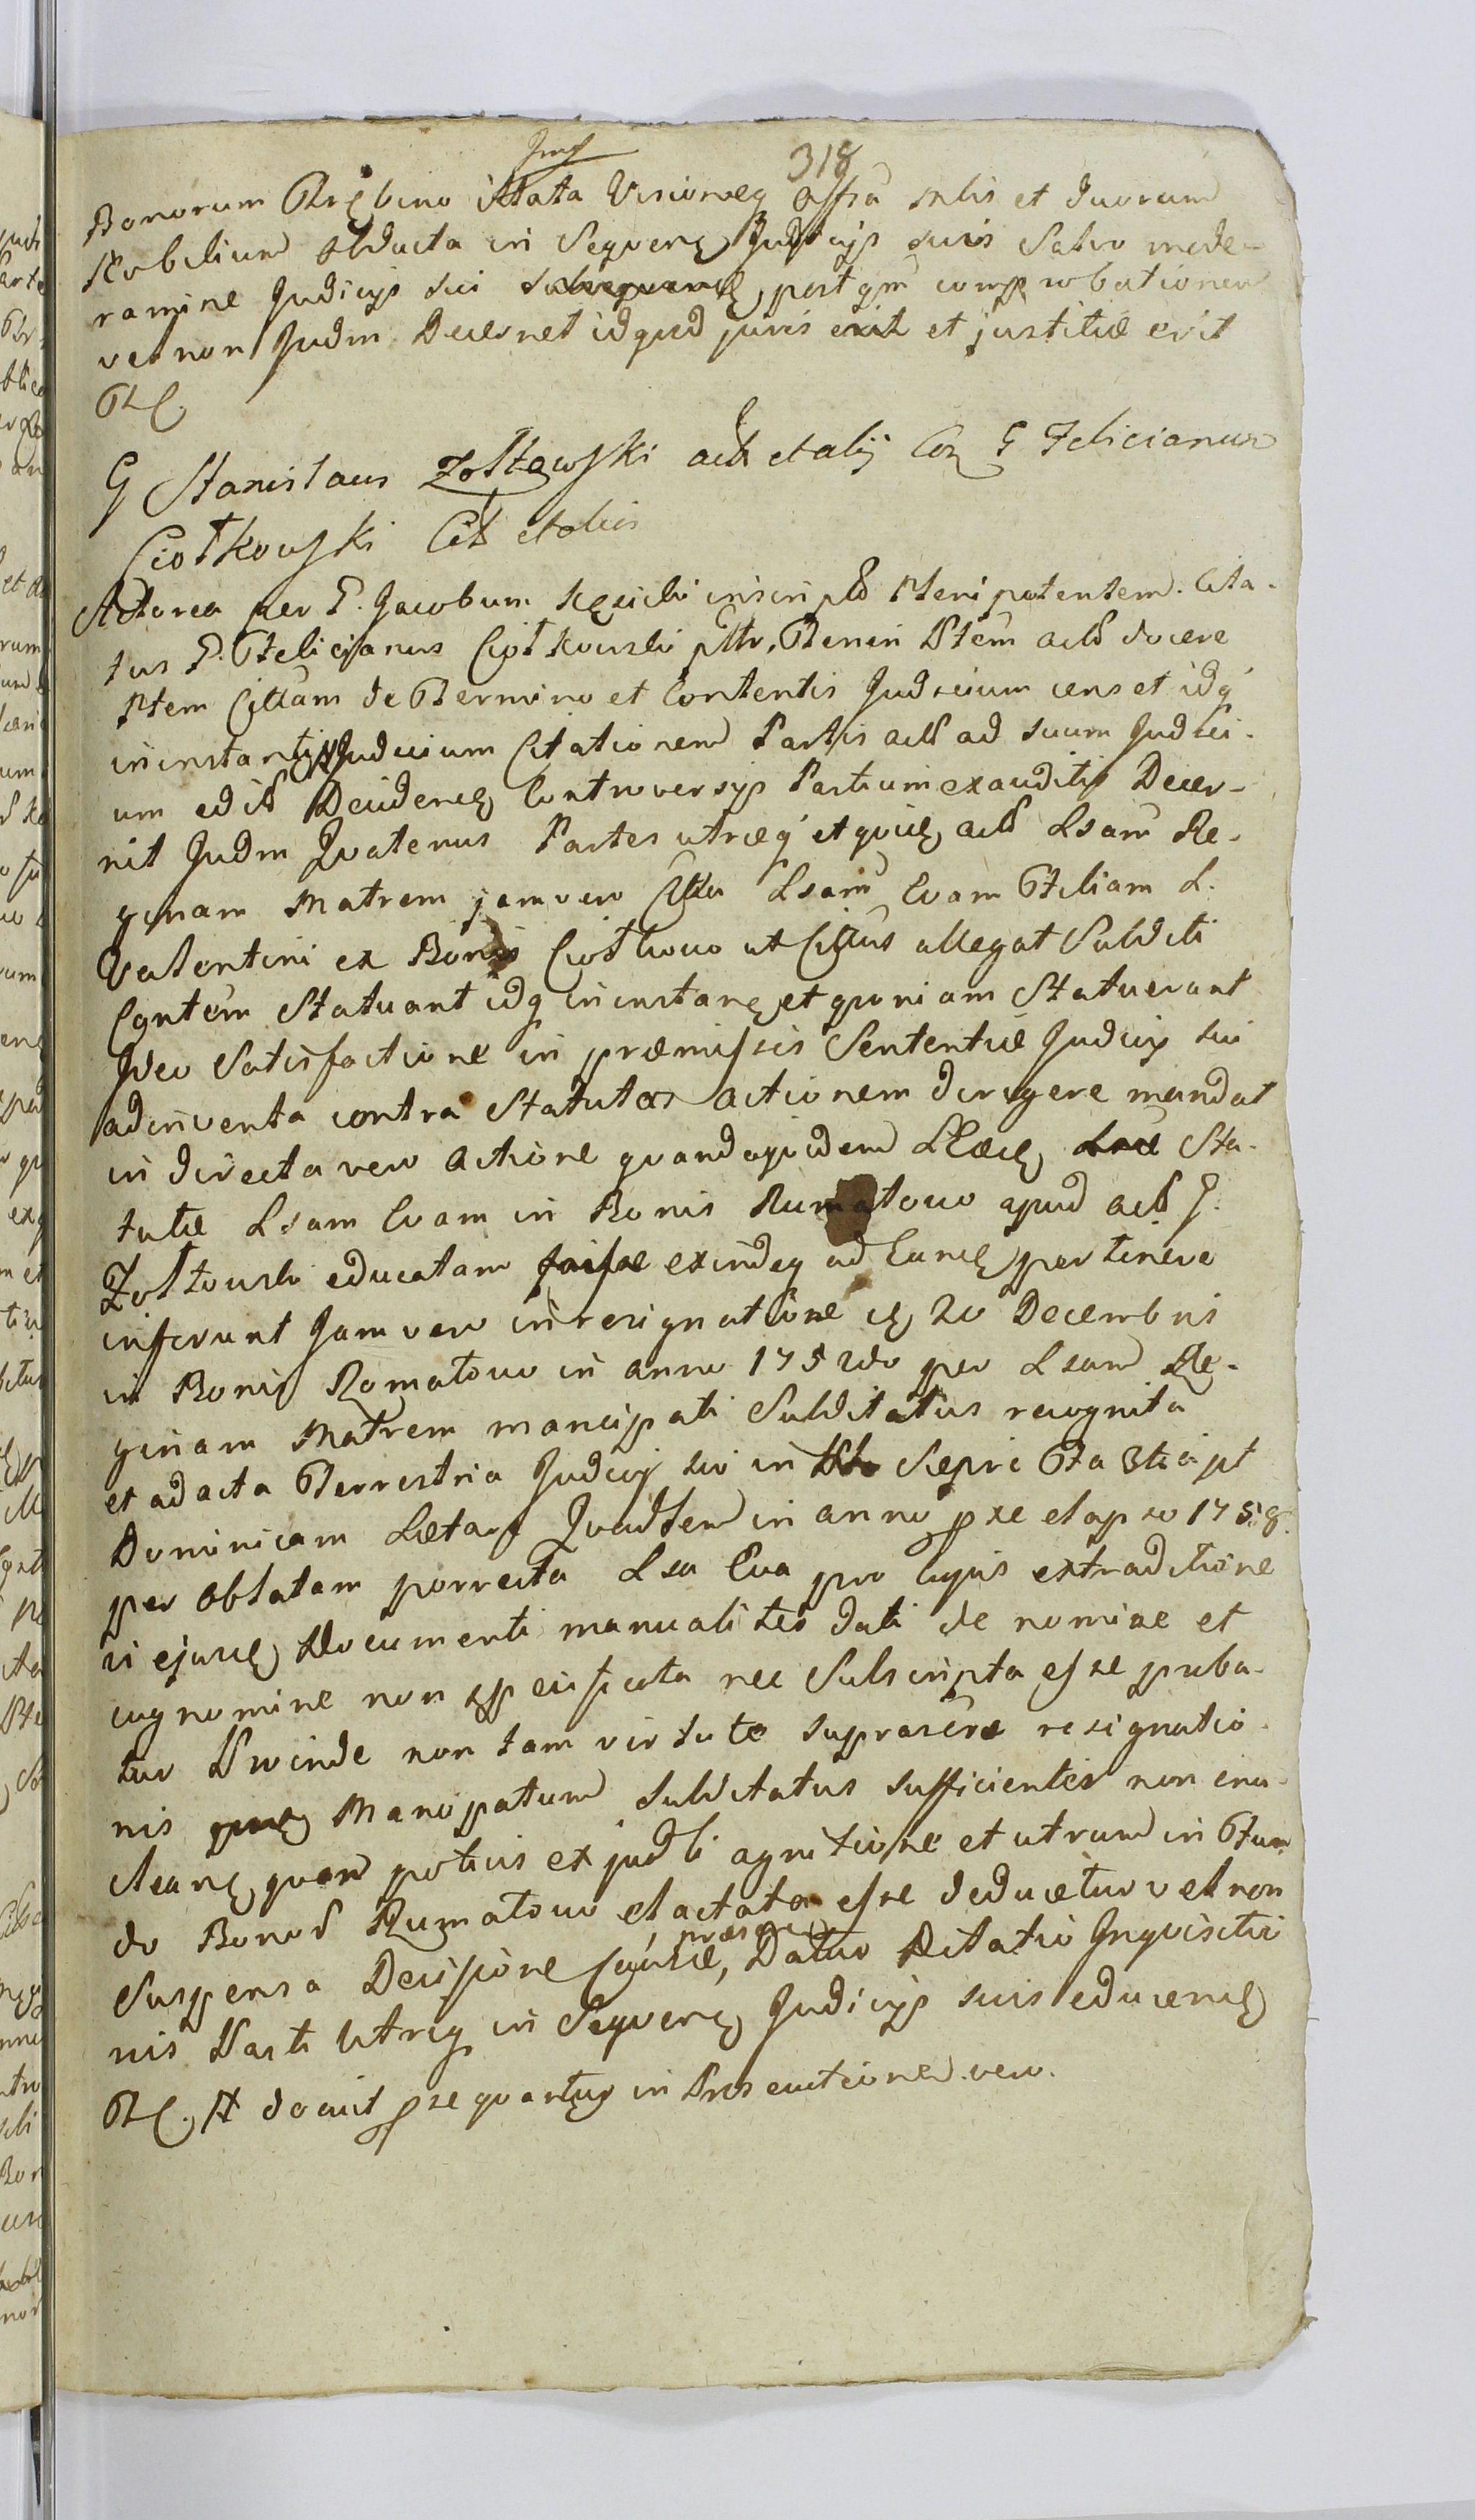 318
Bonorum Stata Visioneq affra Mlis et duorum
Nobilium adducta in Sequenq Judicijs suis Salvo mode-
ramine Judicijs sui postqm comprobationem
vel non Judm Decernet idquod juris et justitiæ erit
G Stanislaus Zołtowski act et alij Con G Felicianum
Ciołkowski Cit et alios
Actorea per G. Jacobum inscript Plenipotentem. Cita-
tus G. Felicianus Ciołkowski pttr. Ptem act docere
Ptem Cittam de Termino et Contentis Judicium censet idq
ininstanti Judicium Citationem Partis act ad suum Judici-
um edit Deciden Controversijs Partium exauditis Decer-
nit Judm Quatenus Partes utræq et act Lsam Re-
ginam Matrem jam vero Lsam Evam Filiam L.
Valentini ex Bonis Ciołkowo ut Cittus allegat Subditi
Statuant idq ininstanq et quoniam Statuerant
Ideo Satisfactione in præmissis Sententiæ Judicij sui
adinventa contra Statutas actionem dirigere mandat
in directa vero actione quandoquidem Sta-
tutæ Lsam Evam in Bonis Rumatowo apud act G.
Zołtowski educatam fuisse exindeq ad Eunq pertinere
inferunt Jam vero in resignatione 20 Decembris
in Bonis Romatowo in anno 1752do per Lsam Re-
ginam Matrem mancipati Subditatus recognita
et ad acta Terrestria Judicij sui in Fa 3tia pt
Dominicam Lætare in anno pxe elapso 1758.
per oblatam porrecta Lsa Eva pro cujus extraditione
vi ejusq Documenti manualiter dati de nomine et
cognomine non specificata nec Subscripta esse proba-
tur Proinde non tam virtute resignatio-
nis Mancipatum Subditatus sufficienter non enu-
cleanq quam potius ex agnitione et utrum in Fun
do Bonor Rumatowo elactata esse deducetur vel non
Suspensa Decisione Causæ, Datur Dilatio Inquisitio
nis Parti Utriq in Sequenq Judicijs suis educenq